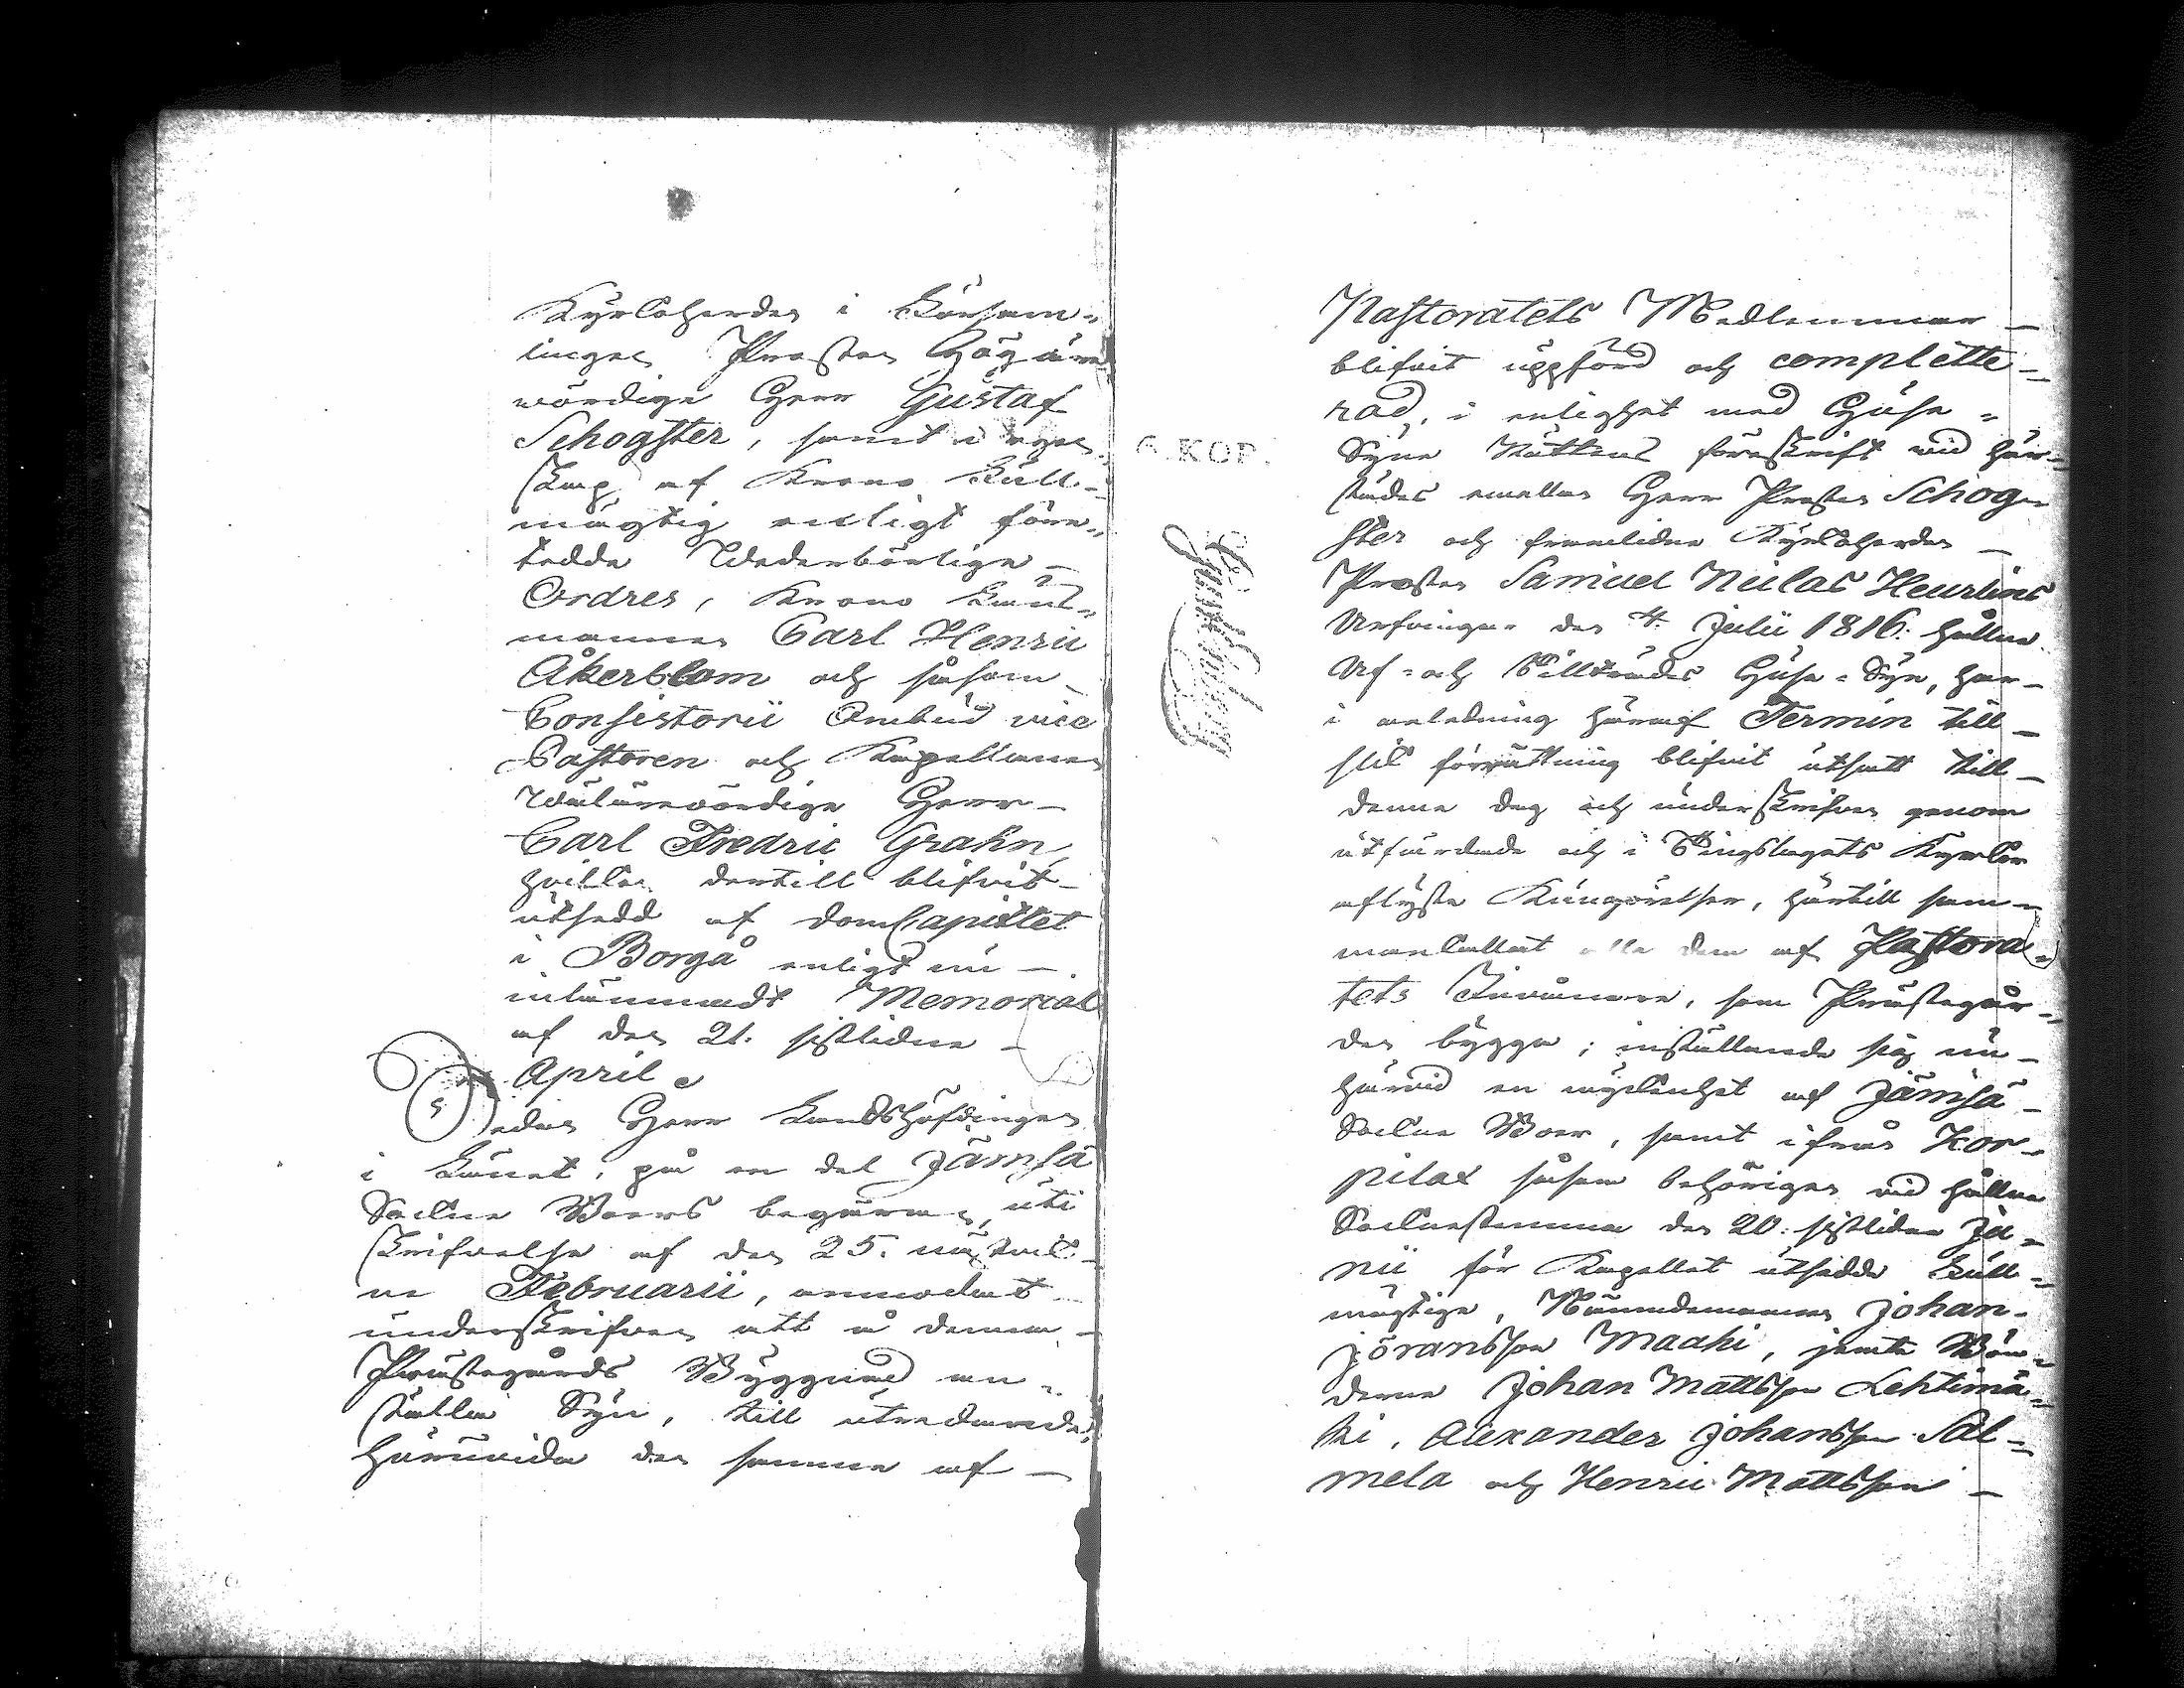 Kyrkoherden i Försam-
lingen Prosten Högähre
wördige Herr Gustaf
Schogster, samt i egen-
skap af Krono Full-
mägtig enligt före-
tedde Wederbörlige
Ordres, Krono Läns-
mannen Carl Henric
Åkerblom och såsom
Consistorii Ombud vice
Pastoren och Kapellanen
Wälärewördige Herr
Carl Fredric Grahn,
hvilken dertill blifvit
utsedd af DomCapitlet
i Borgå enligt nu
inlämnadt Memorial
af den 21. sistlidne
April.
Sedan Herr Landshöfdingen
i Länet, på en del Jämsä
Sockne Boers begäran, uti
skrifvelse af den 25. nästvik-
ne Februarii, anmodat
underskrifven att å denna
Prästegårds Byggnad an-
ställa Syn, till utredande,
huruvida den samma af
Pastoratets Medlemmar
blifvit uppförd och complette-
rad, i enlighet med Huse-
Syne Rättens föreskrift vid här-
städes emellan Herr Prosten Schog-
ster och framlidne Kyrkoherden
Prosten Samuel Niclas Heurlins
Arfvingar den 4. Julii 1816. hållne
Af- och Tillträdes Huse-Syn, har
i anledning häraf Termin till
slik förrättning blifvit utsatt till
denne dag och underskrifven genom
utfärdade och i Tingslagets Kyrkor
aflyste Kungörelser, härtill sam-
mankallat alla dem af Pastora-
tets Invånare, som Prästegår-
den bygga; inställande sig nu
härvid en myckenhet af Jämsä
Sockne Boer, samt ifrån Kor-
pilax såsom behörigen vid hållne
Sockenstemma den 20. sistlidne Ju-
nii för Kapellet utsedde Full-
mägtige, Nämndemannen Johan
Jöransson Maahi, jemte Bön-
derne Johan Mattsson Lehtimä-
ki, Alexander Johansson Sal-
mela och Henric Mattsson
G. KOP.